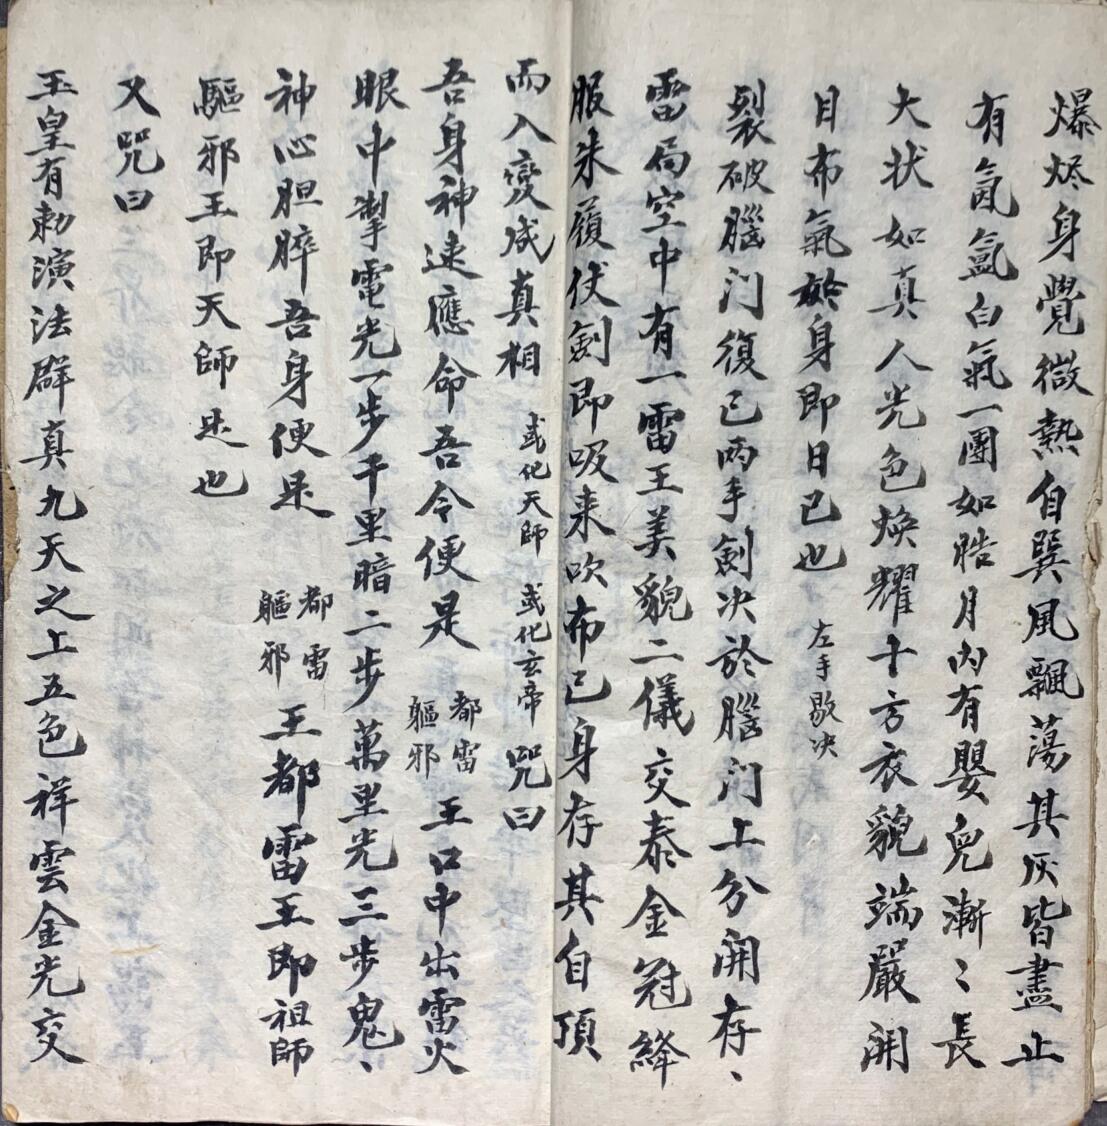 爆烬身覺微熱自巽風飄蕩其灰皆盡止
有氤氳白氣一團如皓月内有嬰兒漸〻長
大状如真人光色焕耀十方衣貌端嚴開
目布氣於身即日已也 左手歇决
裂破腦门復已两手劍决於腦门上分開存、
雷局空中有一雷王美貌二儀交泰金冠絳
服朱履仗劍即吸来吹布己身存其自頂
而入變成真相 或化天師 或化玄帝 咒曰
吾身神速應命吾令便是 都雷 軀邪 王口中出雷火
眼中掣電光一步千里暗二步萬里光三步鬼、
神心胆碎吾身便是 都雷 軀邪 王都雷王即祖師
驅邪王即天師是也
又咒曰
玉皇有勅演法群真九天之上五色祥雲金光交